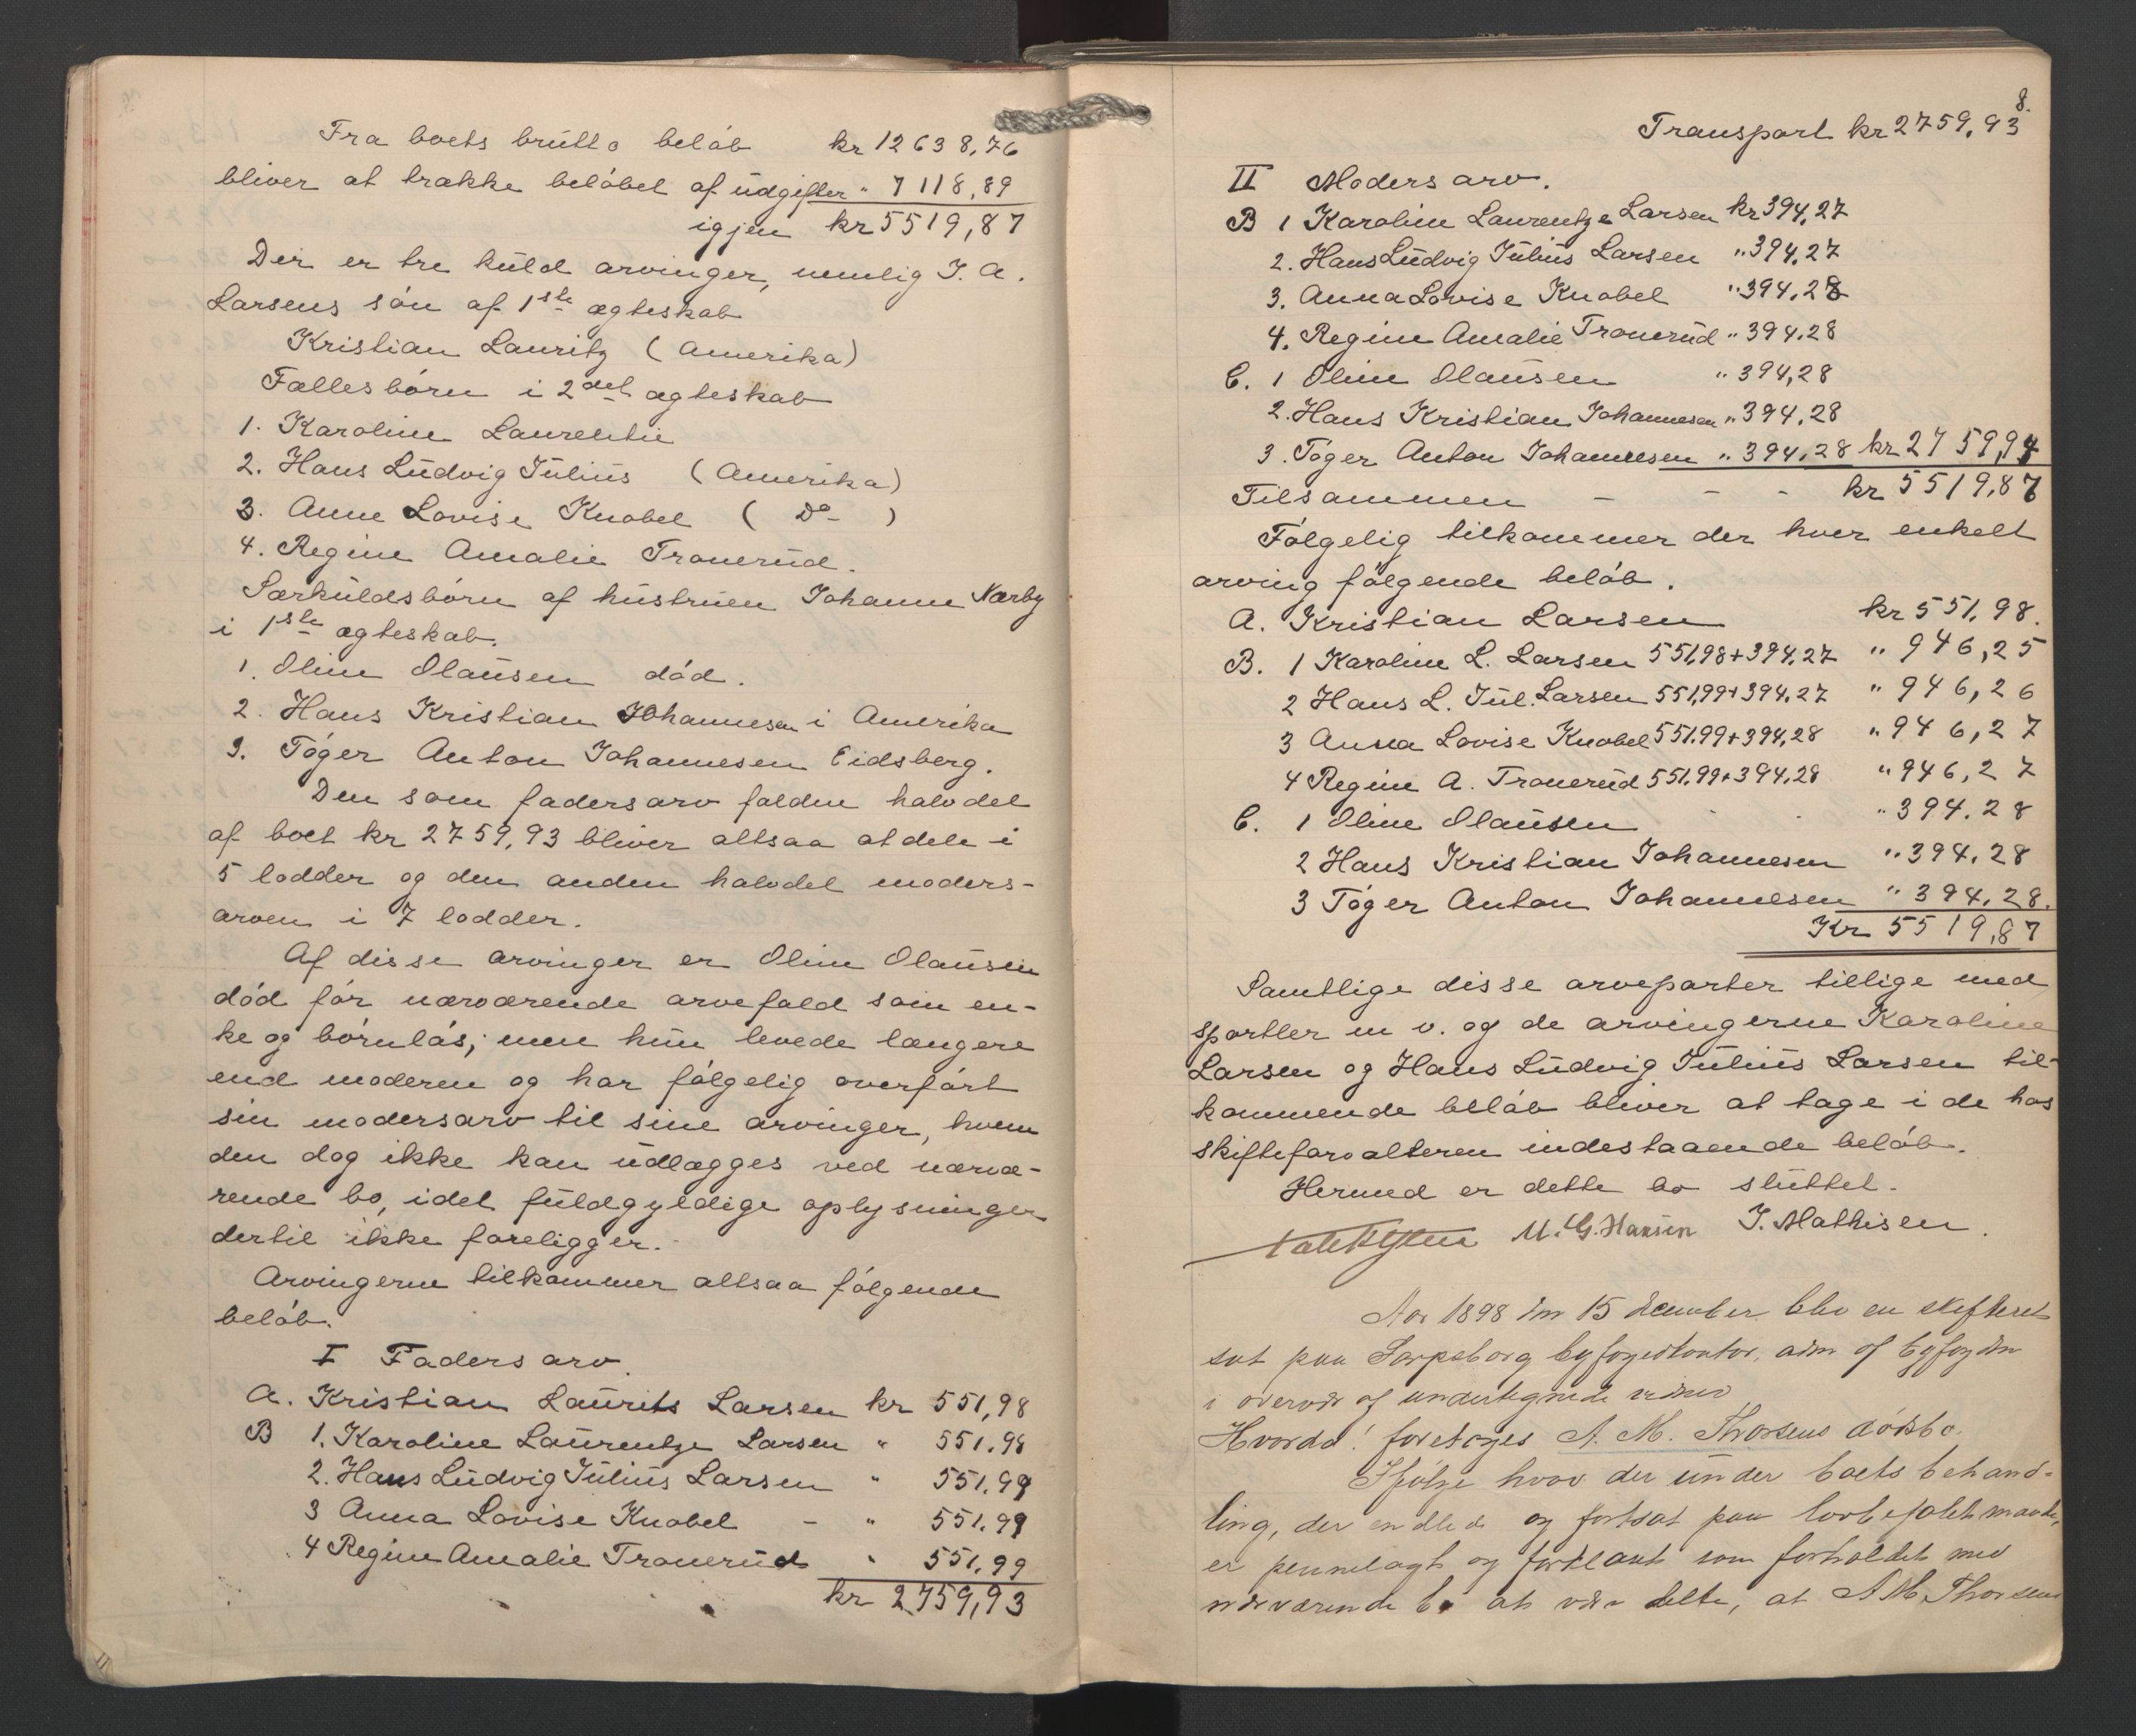 Fra boets brutto beløb kr 12638,76
bliver at trække beløbet af udgifter " 7118,89
igjen kr 5519,87
Der er tre kuld arvinger, nemlig J. A.
Larsens søn af 1ste ægteskab
Kristian Lauritz (Amerika)
Fællesbørn i 2det ægteskab
1. Karoline Laurentie
2. Hans Ludvig Julius (Amerika)
3. Anne Lovise Knobel ( Do )
4. Regine Amalie Tronerud.
Særkuldsbørn af hustruen Johanne Nærby
i 1ste ægteskab.
1. Oline Olausen død.
2. Hans Kristian Johannesen i Amerika
3. Tøger Anton Johannesen Eidsberg.
Den som fadersarv faldne halvdel
af boet kr 2759,93 bliver altsaa at dele i
5 lodder og den anden halvdel moders-
arven i 7 lodder.
Af disse arvinger er Oline Olausen
død før nærværende arvefald som en-
ke og børnløs; men hun levede længere
end moderen og har følgelig overført
sin modersarv til sine arvinger, hvem
den dog ikke kan udlægges ved nærvæ-
rende bo, idet fuldgyldige oplysninger
dertil ikke foreligger.
Arvingerne tilkommer altsaa følgende
beløb.
I Faders arv
A. Kristian Laurits Larsen kr 551,98
B 1. Karoline Laurentze Larsen " 551.98
2. Hans Ludvig Julius Larsen " 551.99
3 Anna Lovise Knobel - " 551.99
4 Regine Amalie Tronerud " 551,99
kr 2759,93
8.
Transport kr 2759,93
II Moders arv.
B 1 Karoline Laurentze Larsen kr 394,27
2. Hans Ludvig Julius Larsen " 394,27
3. Anna Lovise Knobel " 394,28
4. Regine Amalie Tronerud " 394.28
C. 1 Oline Olausen " 394,28
2. Hans Kristian Johannesen " 394,28
3. Tøger Anton Johannesen " 394,28 kr 2759,94
Tilsammen - - - kr 5519,87
Følgelig tilkommer der hver enkelt
arving følgende beløb.
A. Kristian Larsen kr 551,98.
B. 1 Karoline L. Larsen 551,98+394,27 " 946,25
2 Hans L. Jul. Larsen 551,99+394,27 " 946,26
3 Anna Lovise Knobel 551.99+394,28 " 946,27
4 Regine A. Tronerud 551,99+394,28 " 946,27
C. 1 Oline Olausen " 394.28
2 Hans Kristian Johannesen " 394,28
3 Tøger Anton Johannesen " 394,28.
Kr 5519,87
Samtlige disse arveparter tillige med
sportler m v. og de arvingerne Karoline
Larsen og Hans Ludvig Julius Larsen til-
kommende beløb bliver at tage i de hos
skifteforvalteren indestaaende beløb.
Hermed er dette bo sluttet.
M. G. Hansen J. Mathisen.
Aar 1898 den 15 december blev en skifteret
sat paa Sarpsborg byfogedkontor, adm af byfogden
i overvær af undertegnede vidner
Hvorda! foretoges A. M. Thorsens dødsbo.
Ifølge hvad der under boets behand-
ling, der er og fortsat paa lovbefalet maade,
er og forklaret som forholdet med
nærværende bo at være dette, at A M. Thorsens